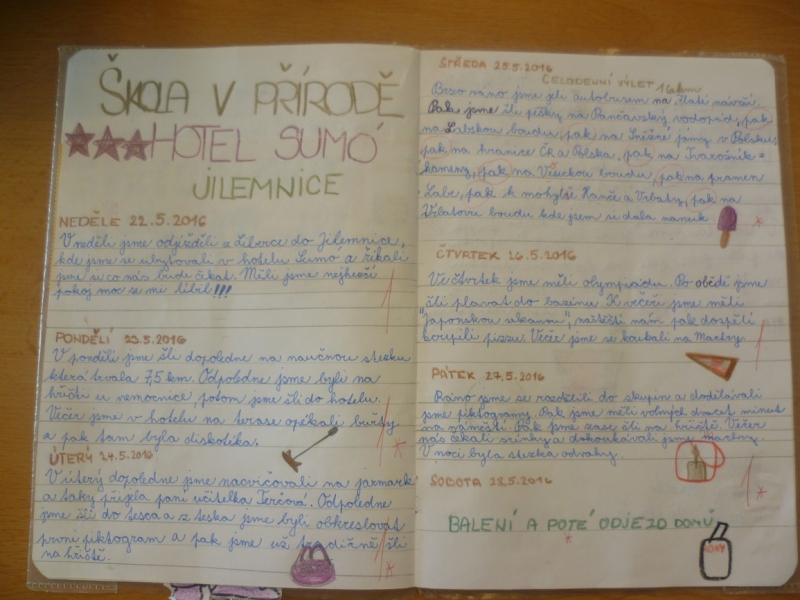 ŠKOLA V PŘÍRODĚ
HOTEL SUMÓ
JILEMNICE
NEDĚLE 22.5.2016
V neděli jsme odjížděli z Liberce do Jilemnice,
kde jsme se ubytovali v hotelu Sumó a říkali
jsme si co nás bude čekat. Měli jsme nejhezčí
pokoj moc se mi líbil!!!
1
PONDĚLÍ 23.5.2016
V pondělí jsme šli dopoledne na naučnou stezku
která trvala 7,5 km. Odpoledne jsme byli na
hřišti u nemocnice, potom jsme šli do hotelu.
Večer jsme v hotelu na terase opékali buřty
a pak tam byla diskotéka.
1*
ÚTERÝ 24.5.2016
V úterý dopoledne jsme nacvičovali na jarmark
a taky přijela paní učitelka Terčová. Odpoledne
jsme šli do tesca a z teska jsme byli obkreslovat
první piktogram a pak jsme už tradičně šli
na hřiště.
1*
STŘEDA 25.5.2016
CELODENNÍ VÝLET 16km
Brzo ráno jsme jeli autobusem na Zlaté návrší.
Pak jsme šli pěšky na Pančavský vodopád, pak
na Labskou boudu, pak na Sněžné jámy v Polsku,
pak na hranice ČR a Polska, pak na Tvarožník=
kameny, pak na Voseckou boudu, pak na pramen
Labe, pak k mohyle Hanče a Vrbaty, pak na
Vrbatovu boudu kde jsem si dala nanuk
*
ČTVRTEK 26.5.2016
Ve čtvrtek jsme měli olympiádu. Po obědě jsme
šli plavat do bazénu. K večeři jsme měli
"japonskou sekanou", naštěstí nám pak dospělí
koupili pizzu. Večer jsme se koukali na Machry.
1
PÁTEK 27.5.2016
Ráno jsme se rozdělili do skupin a dodělávali
jsme piktogramy. Pak jsme měli volných dvacet minut
na náměstí. Pak jsme zase šli na hřiště. Večer
nás čekali srnky a dokoukávali jsme Machry.
V noci byla stezka odvahy.
1*
SOBOTA 28.5.2016
BALENÍ A POTÉ ODJEZD DOMŮ
*